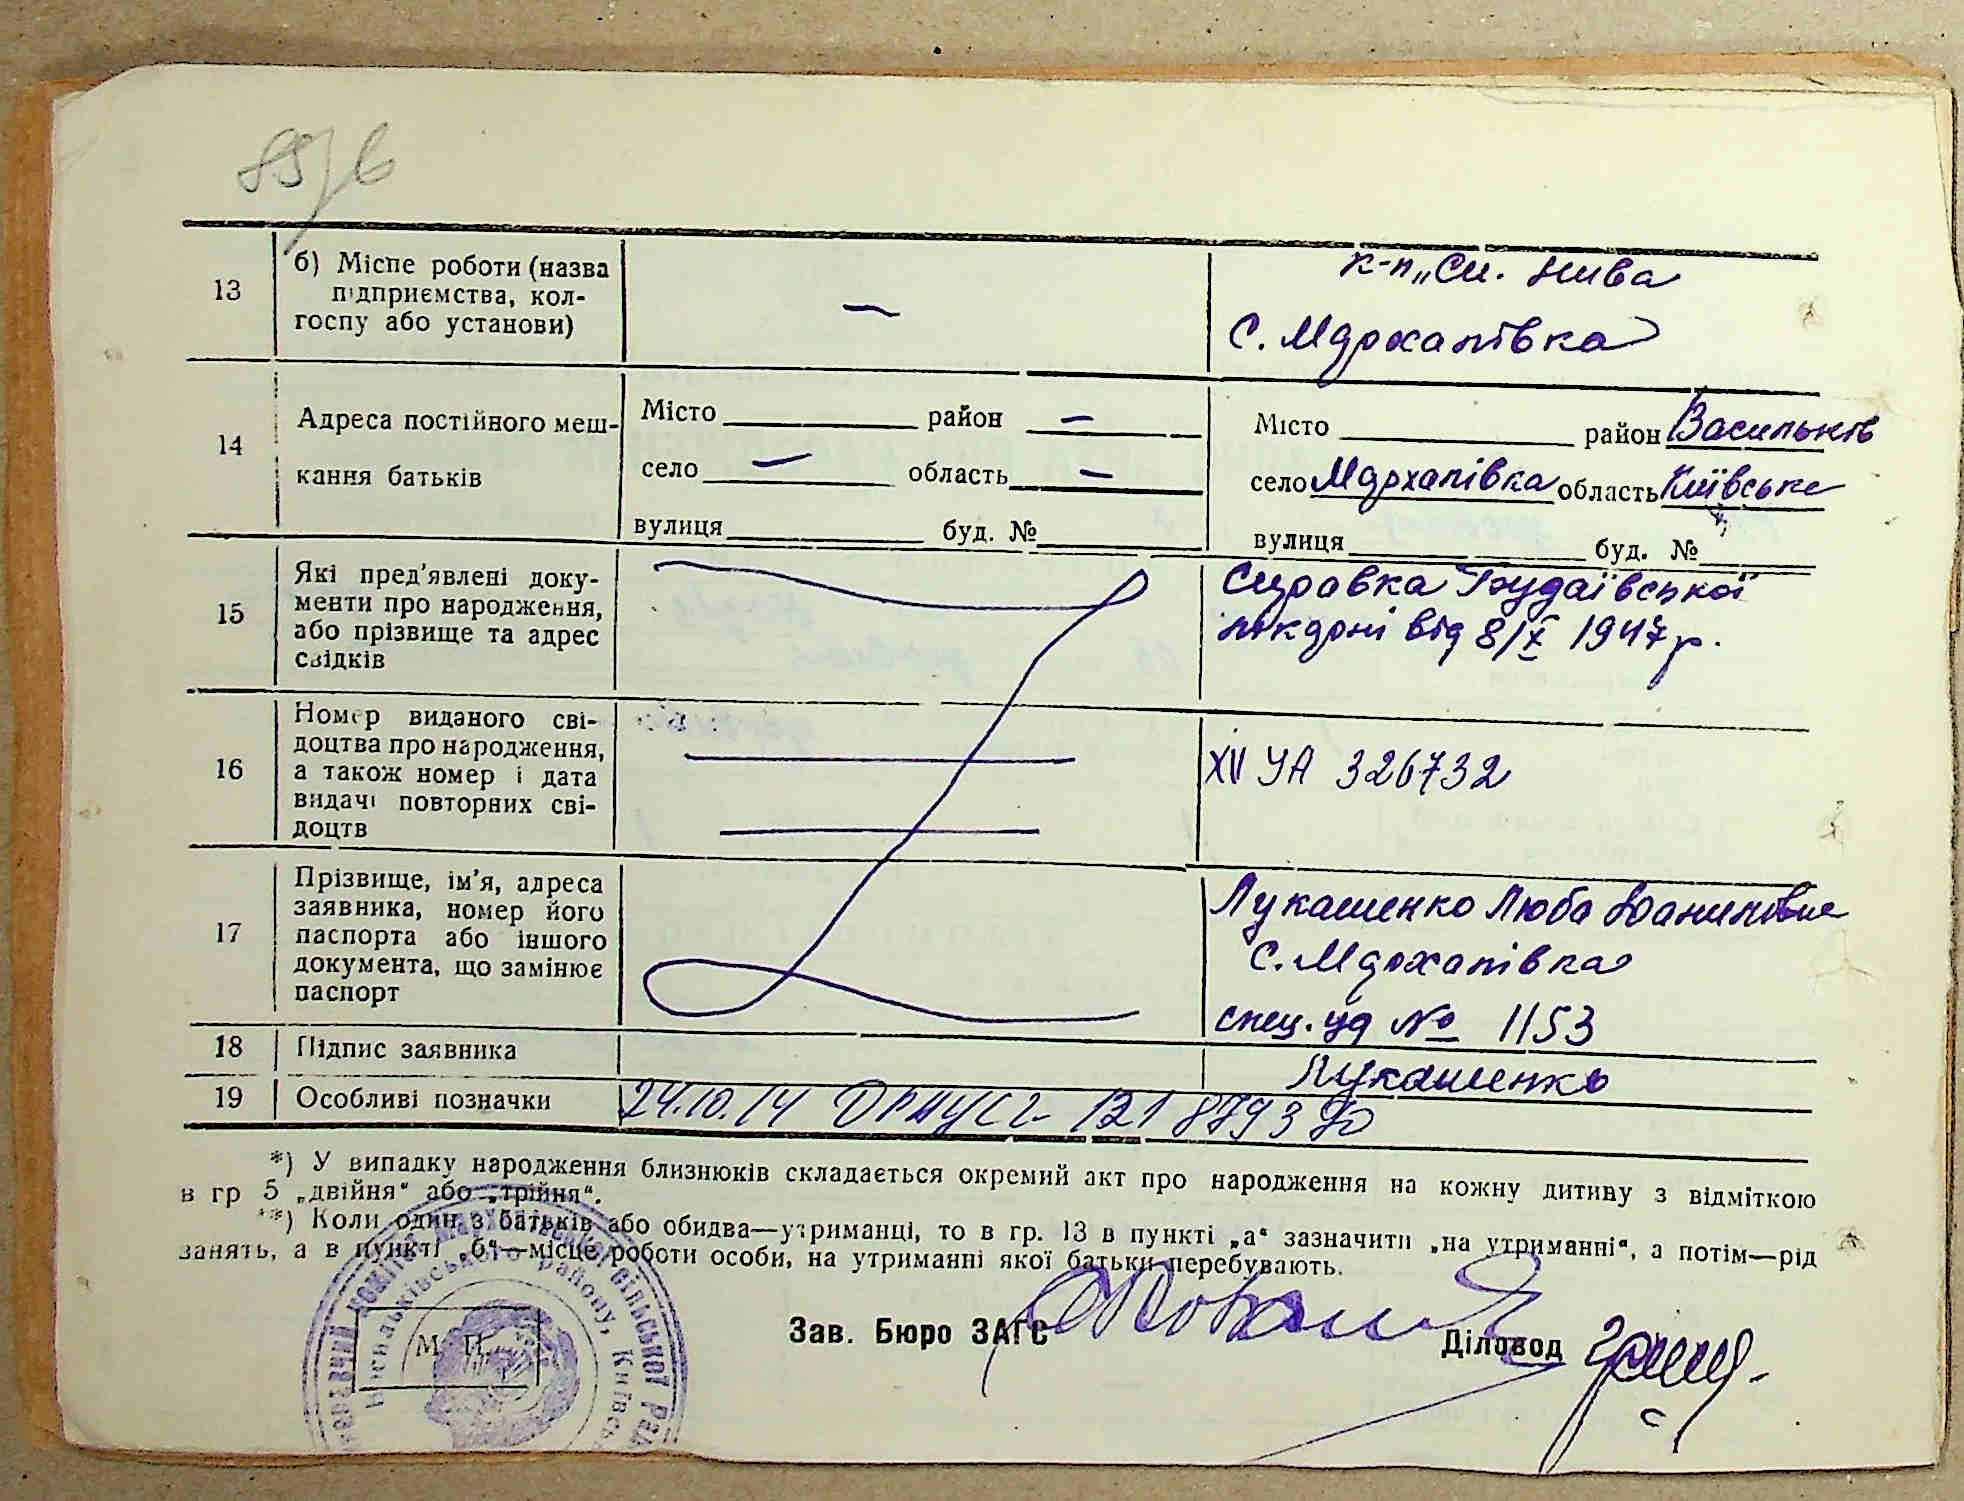 13
б) Місце роботи (назва
підприємства, кол-
госпу або установи)
—
к-п „См. нива
С. Мархалівка
14
Адреса постійного меш-
кання батьків
Місто район —
село — область —
вулиця буд. №
Місто район Васильків
село Мархалівка область Київське
вулиця буд. №
15
Які пред'явлені доку-
менти про народження,
або прізвище та адрес
свідків
Справка Будаївської
лікарні від 8/X 1947 р.
16
Номер виданого сві-
доцтва про народження,
а також номер і дата
видачі повторних сві-
доцтв
XV УА 326732
17
Прізвище, ім'я, адреса
заявника, номер його
паспорта або іншого
документа, що замінює
паспорт
Лукашенко Люба Даниловна
С. Мархалівка
спец. уд № 1153
18
Підпис заявника
Лукашенко
19
Особливі позначки
24.10.14 ДРАЦСГ
*) У випадку народження близнюків складається окремий акт про народження на кожну дитину з відміткою
в гр 5 „двійня“ або „трійня“.
**) Коли один з батьків або обидва—утриманці, то в гр. 13 в пункті „а“ зазначити „на утриманні“, а потім—рід
занять, а в пункті „б“—місце роботи особи, на утриманні якої батьки перебувають.
М. П.
Зав. Бюро ЗАГС
Діловод